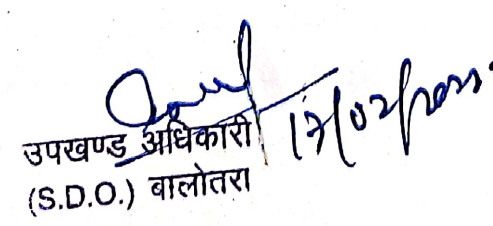 17/02/
उपखण्ड अधिकारी
(S.D.O.) बालोतरा